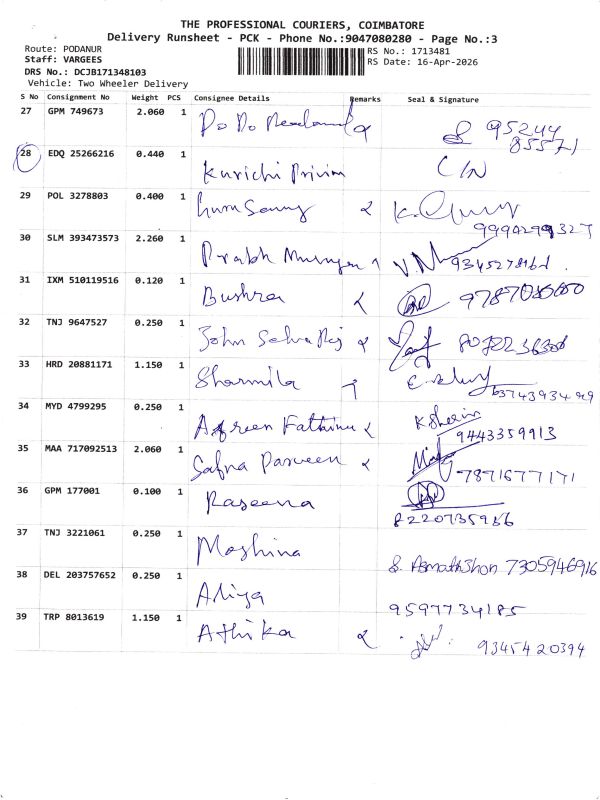 THE PROFESSIONAL COURIERS, COIMBATORE
Delivery Runsheet - PCK - Phone No.:9047080280 - Page No.:3
Route: PODANUR
RS No.: 1713481
Staff: VARGEES
RS Date: 16-Apr-2026
DRS No.: DCJB171348103
Vehicle: Two Wheeler Delivery
S No Consignment No Weight PCS Consignee Details Remarks Seal & Signature
27 GPM 749673 2.060 1 95244
85571
28 EDQ 25266216 0.440 1 Kurichi C/N
29 POL 3278803 0.400 1
30 SLM 393473573 2.260 1 Prabh
31 IXM 510119516 0.120 1 Bushra
32 TNJ 9647527 0.250 1 John Selva Raj
33 HRD 20881171 1.150 1 Sharmila
34 MYD 4799295 0.250 1 Afreen Fathima K Sherin
9443359913
35 MAA 717092513 2.060 1 Safna Parveen 7871677171
36 GPM 177001 0.100 1 Raseena
8220735956
37 TNJ 3221061 0.250 1 Moshina
7305946916
38 DEL 203757652 0.250 1 Aliya
9597734185
39 TRP 8013619 1.150 1 Athika 9345420394